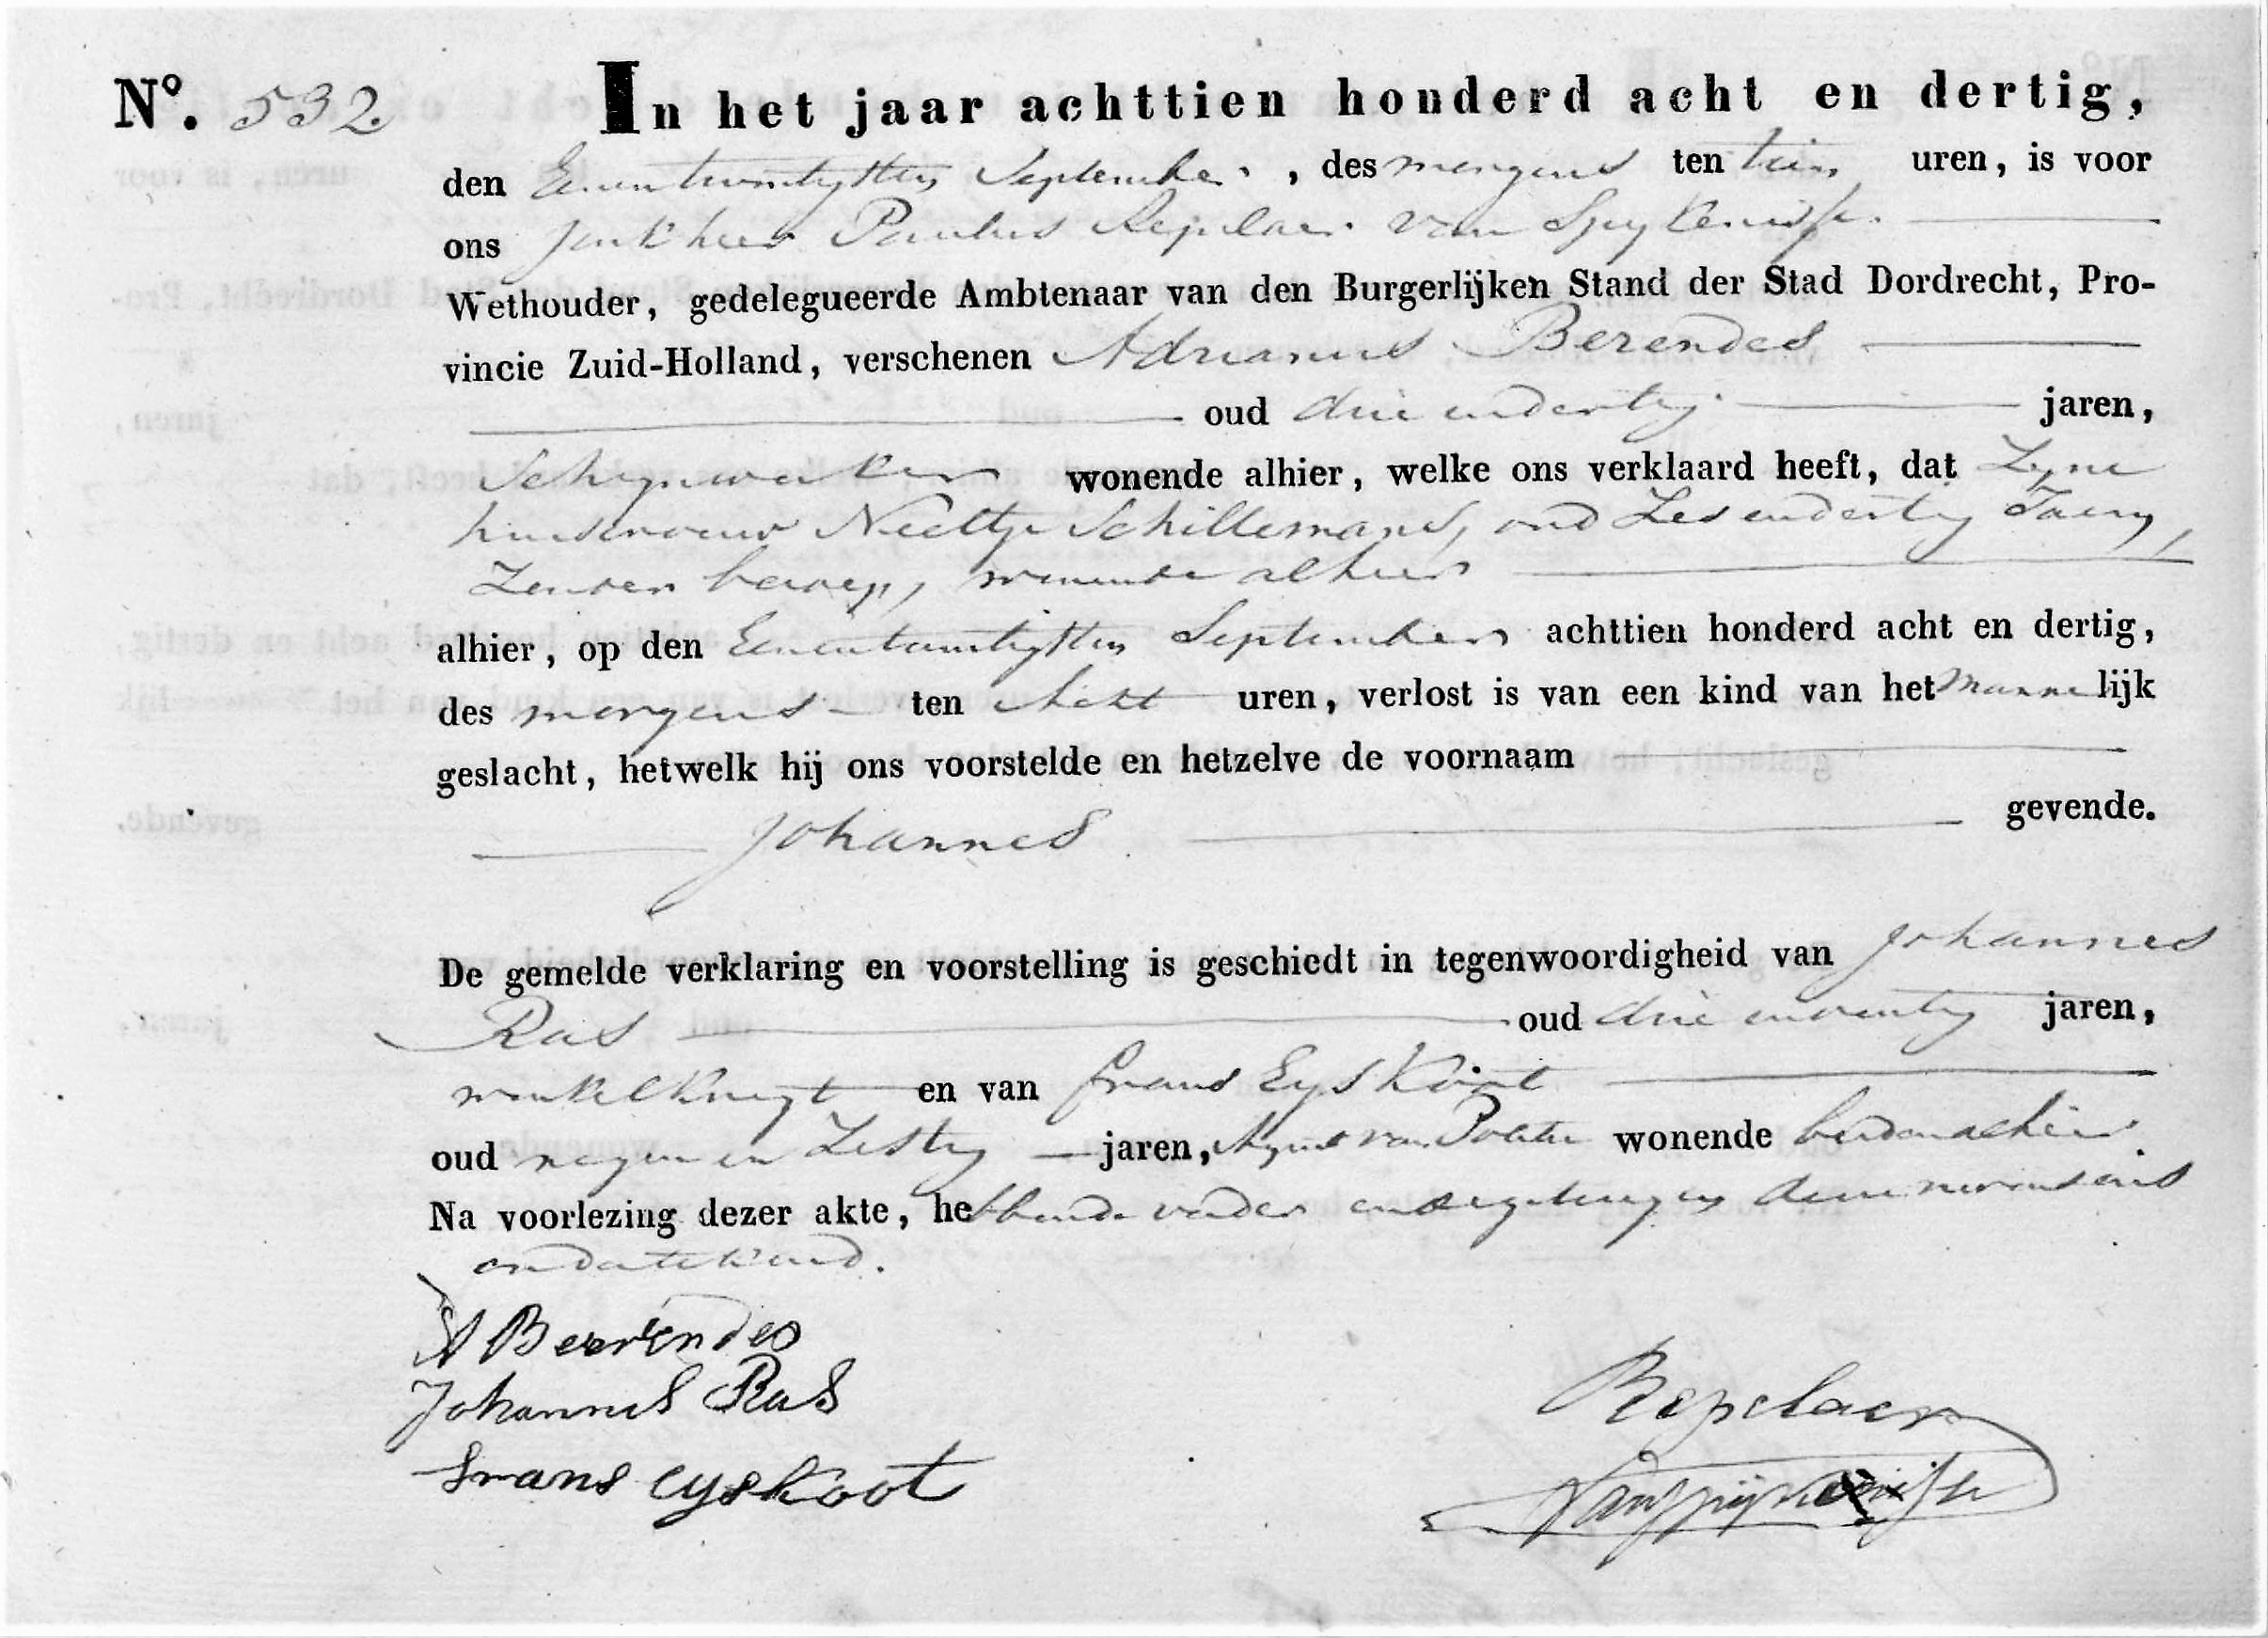 Nº. 532. In het jaar achttien honderd acht en dertig,
den Eenentwintigsten September, des morgens ten tien uren, is voor
ons Jonkheer Paulus Repelaer van Spykenisse
Wethouder, gedelegueerde Ambtenaar van den Burgerlijken Stand der Stad Dordrecht, Pro-
vincie Zuid-Holland, verschenen Adrianus Berendes
oud drie endertig jaren,
Schrynwerker wonende alhier, welke ons verklaard heeft, dat Zyne
huisvrouw Neeltje Schillemans, oud Zesendertig Jaren,
Zonder beroep, wonende alhier
alhier, op den Eenentwintigsten September achttien honderd acht en dertig,
des morgens ten Acht uren, verlost is van een kind van het mannelijk
geslacht, hetwelk hij ons voorstelde en hetzelve de voornaam
Johannes gevende.
De gemelde verklaring en voorstelling is geschiedt in tegenwoordigheid van Johannes
Ras oud drie jaren,
winkelknegt en van Frans Eyskoot
oud negen en Zestig jaren, Agent van Politie wonende beiden alhier
Na voorlezing dezer akte, hebbende vader en getuigen deze nevens ons
onderteekend.
A Beerendes
Johannes Ras
Frans Eyskoot
Repelaer
van Spijkenisse